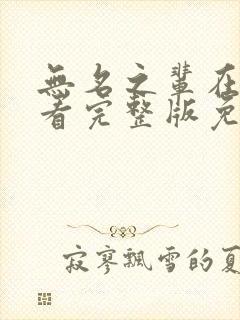 無名之輩在
看完整版免
寂寥飄雪的夏